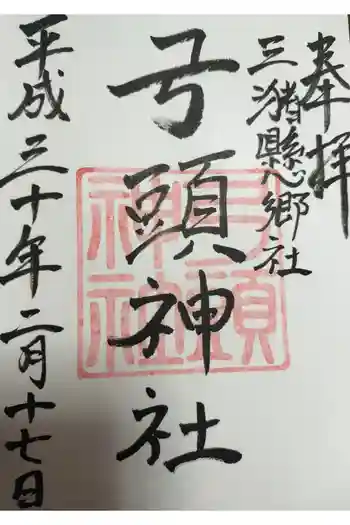 奉拝
三潴懸郷社
弓頭神社
弓頭神社
平成三十年二月十七日